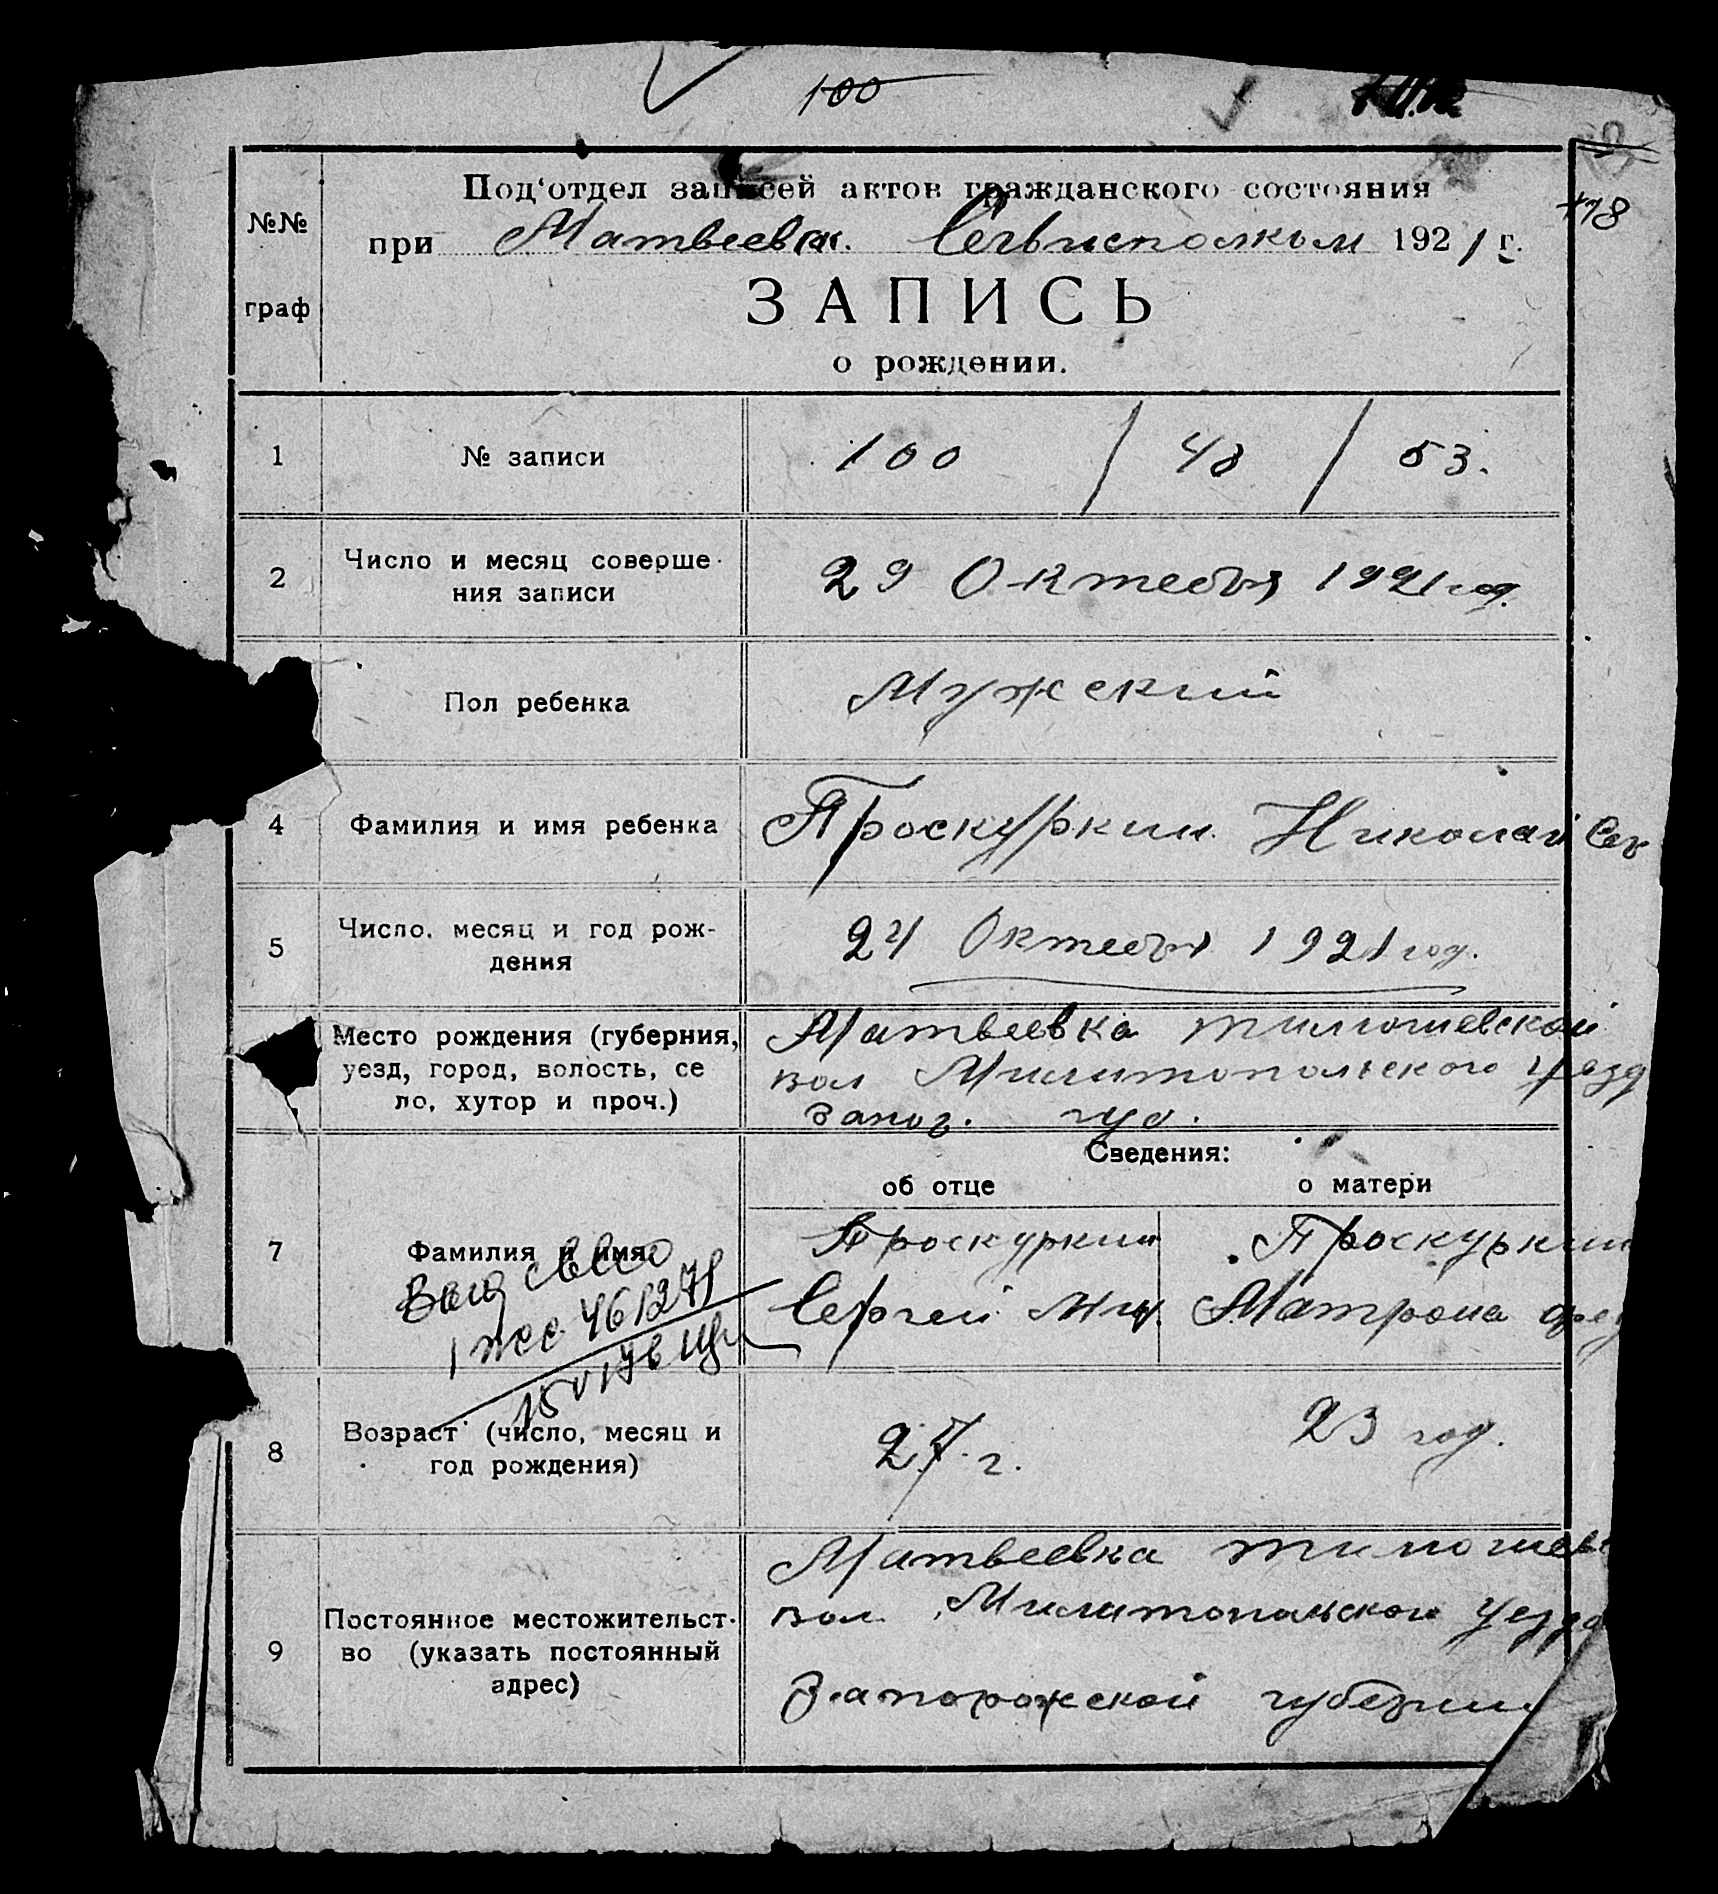 100
№№
граф
Под'отдел записей актов гражданского состояния
при Матвеевск. 1921 г.
ЗАПИСЬ
о рождении.
1
№ записи
100 / 43 / 53.
2
Число и месяц соверше-
ния записи
29 Октебря 1921 год.
Пол ребенка
Мужский
4
Фамилия и имя ребенка
Проскуркин Николай Сер
5
Число, месяц и год рож-
дения
24 Октебря 1921 год.
Место рождения (губерния,
уезд, город, волость, се
ло, хутор и проч.)
Матвеевка Тимошевской
вол Милитопольского уезд
Запор. губ.
Сведения:
об отце
о матери
7
Фамилия и имя.
Проскуркин
Сергей
Проскуркин
Матрона Фед
8
Возраст (число, месяц и
год рождения)
27 г.
23 год.
9
Постоянное местожительст-
во (указать постоянный
адрес)
Матвеевка Тимошев
вол. Милитопольской уезда
Запорожской губернии